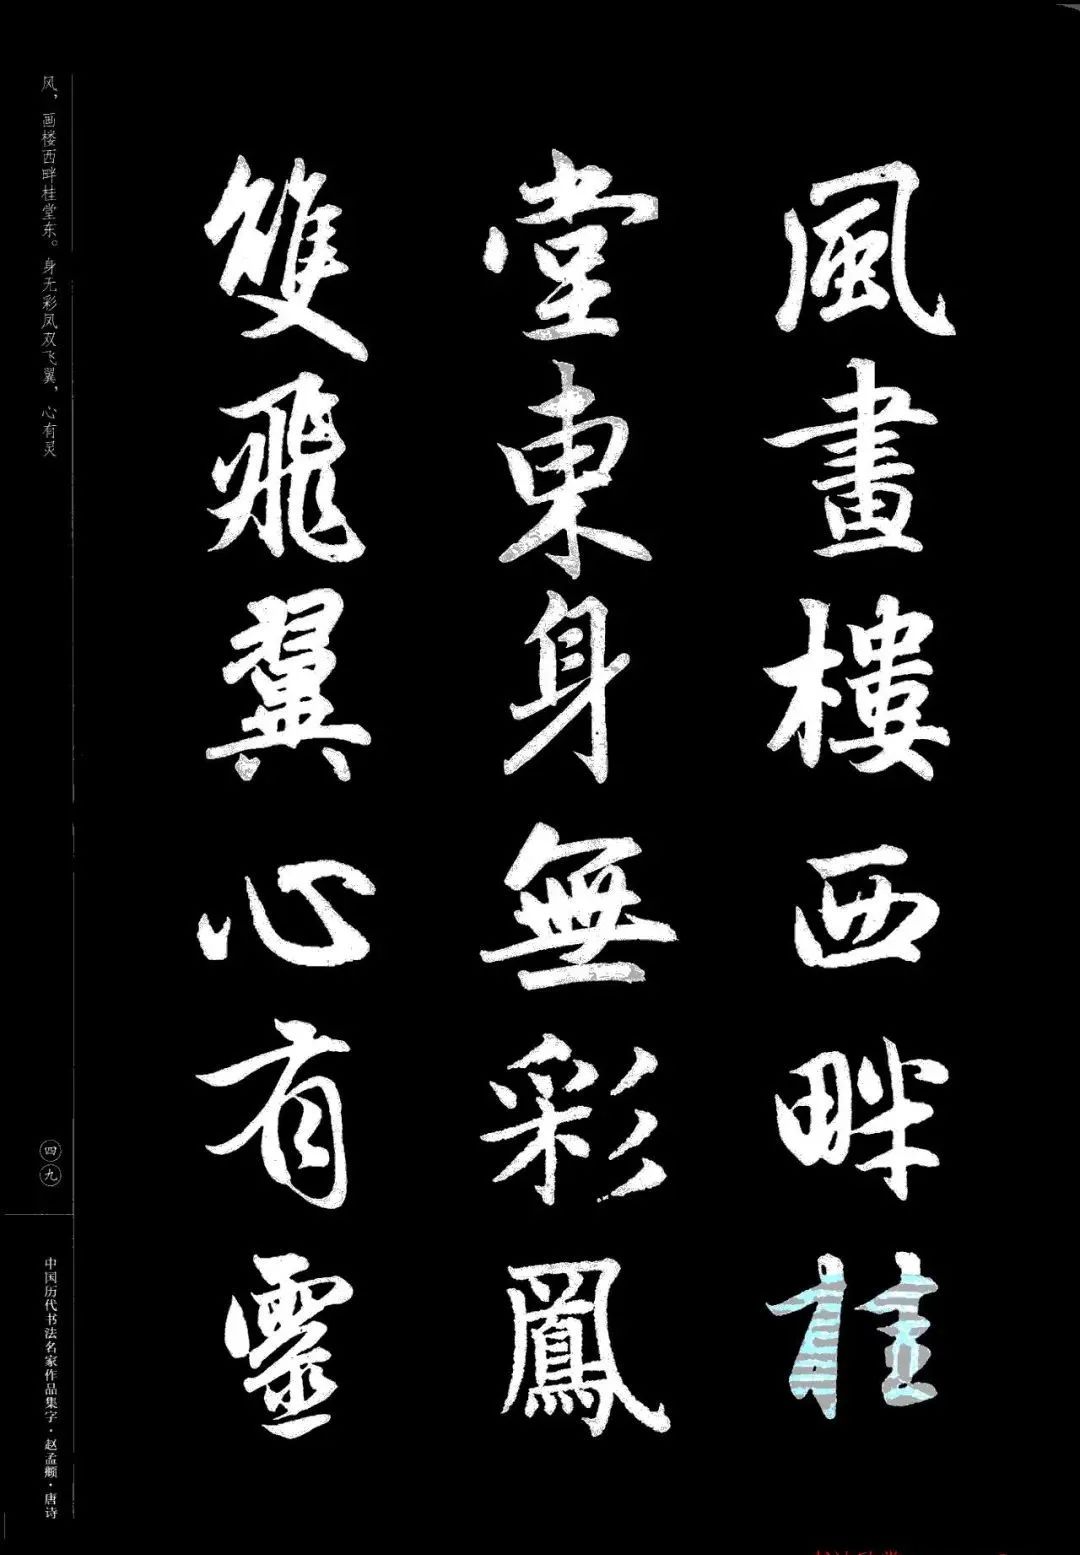 風畫樓西畔桂
堂東身無彩鳳
雙飛翼心有靈
风，画楼西畔桂堂东。身无彩凤双飞翼，心有灵
四九
中国历代书法名家作品集字·赵孟頫·唐诗